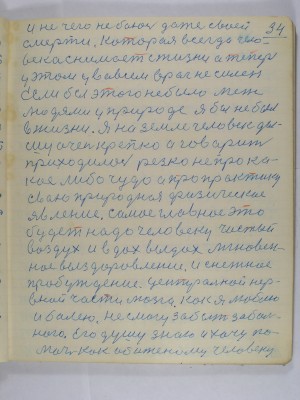 34
и не чего не боюсь даже своей
смерти. Которая всегда чело-
века снимает с жизни а теперь
у этом у вовсем враг не силен
Если бы этого не было меж
людями у природе я бы не был
в жизни. Я на земле человек ды-
шу очен крепко а говорит
приходимся резко не про ка-
кое либо чудо а про практику
сваю природная физическое
явление. Самое главное это
будет надо человеку чистый
воздух и вдох выдох мгновен-
ное выздоровлении. и снежное
пробуждение центральной нер-
вной части мозга. Как я люблю
и болею. Не могу забыть забол-
ного. Его душу знаю и хочу по-
мочь как обиженому человеку